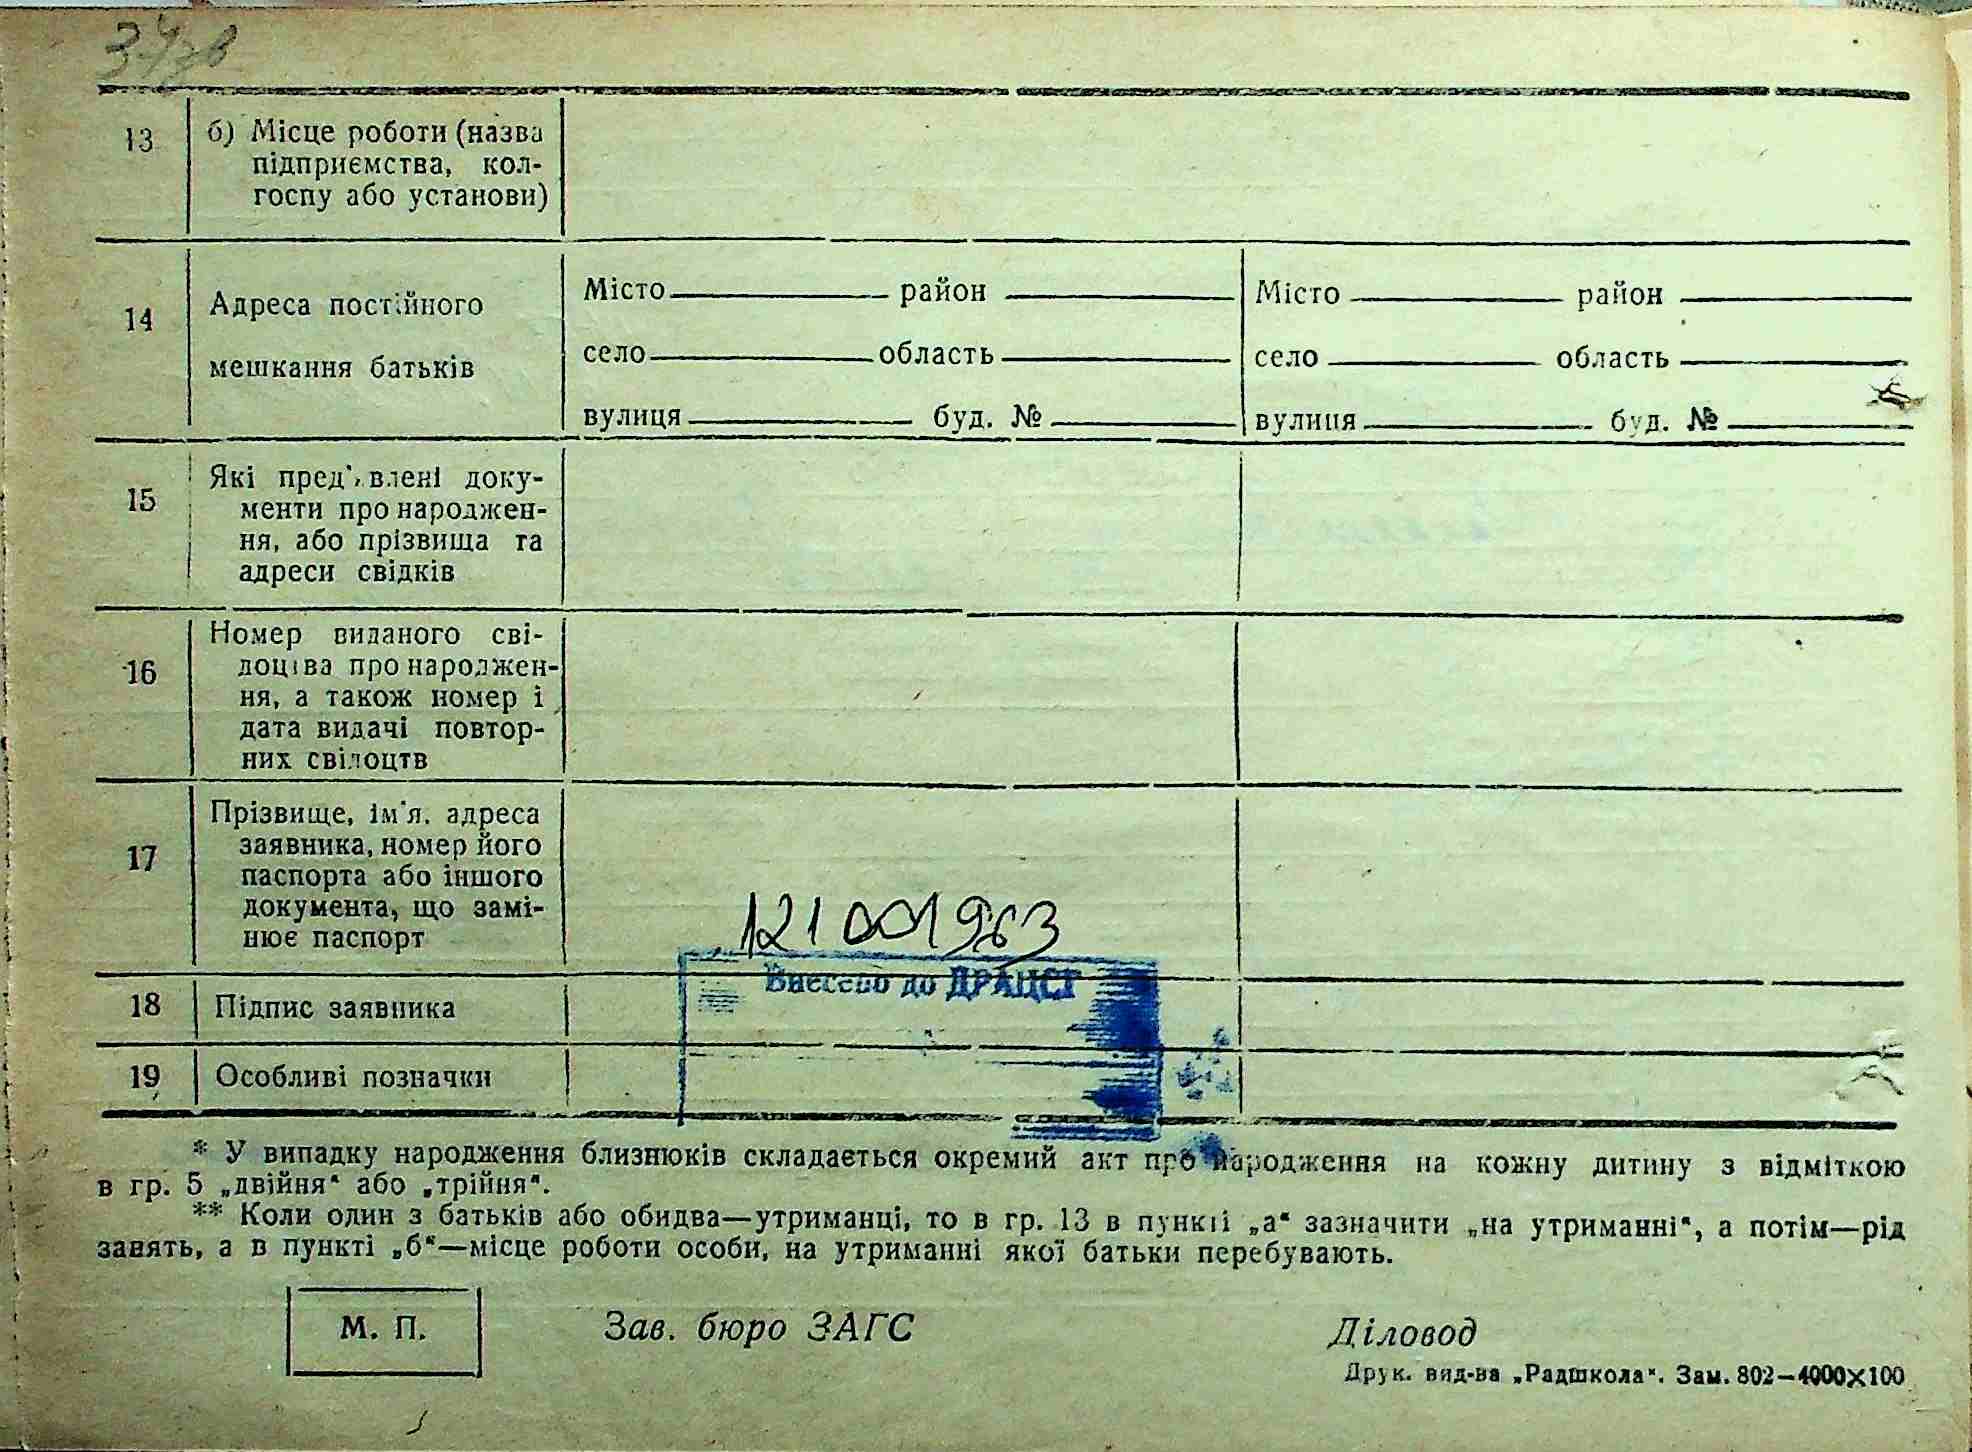 34зв
13 б) Місце роботи (назва
підприємства, кол-
госпу або установи)
14 Адреса постійного
мешкання батьків
Місто район
село область
вулиця буд. №
Місто район
село область
вулиця буд. №
15 Які пред'явлені доку-
менти про народжен-
ня, або прізвища та
адреси свідків
16 Номер виданого сві-
доцтва про народжен-
ня, а також номер і
дата видачі повтор-
них свідоцтв
17 Прізвище, ім'я, адреса
заявника, номер його
паспорта або іншого
документа, що замі-
нює паспорт
121001963
Внесено до ДРАЦСГ
18 Підпис заявника
19 Особливі позначки
* У випадку народження близнюків складається окремий акт про народження на кожну дитину з відміткою
в гр. 5 „двійня“ або „трійня“.
** Коли один з батьків або обидва—утриманці, то в гр. 13 в пункті „а“ зазначити „на утриманні“, а потім—рід
занять, а в пункті „б“—місце роботи особи, на утриманні якої батьки перебувають.
М. П.
Зав. бюро ЗАГС
Діловод
Друк. вид-ва „Радшкола“. Зам. 802—4000×100